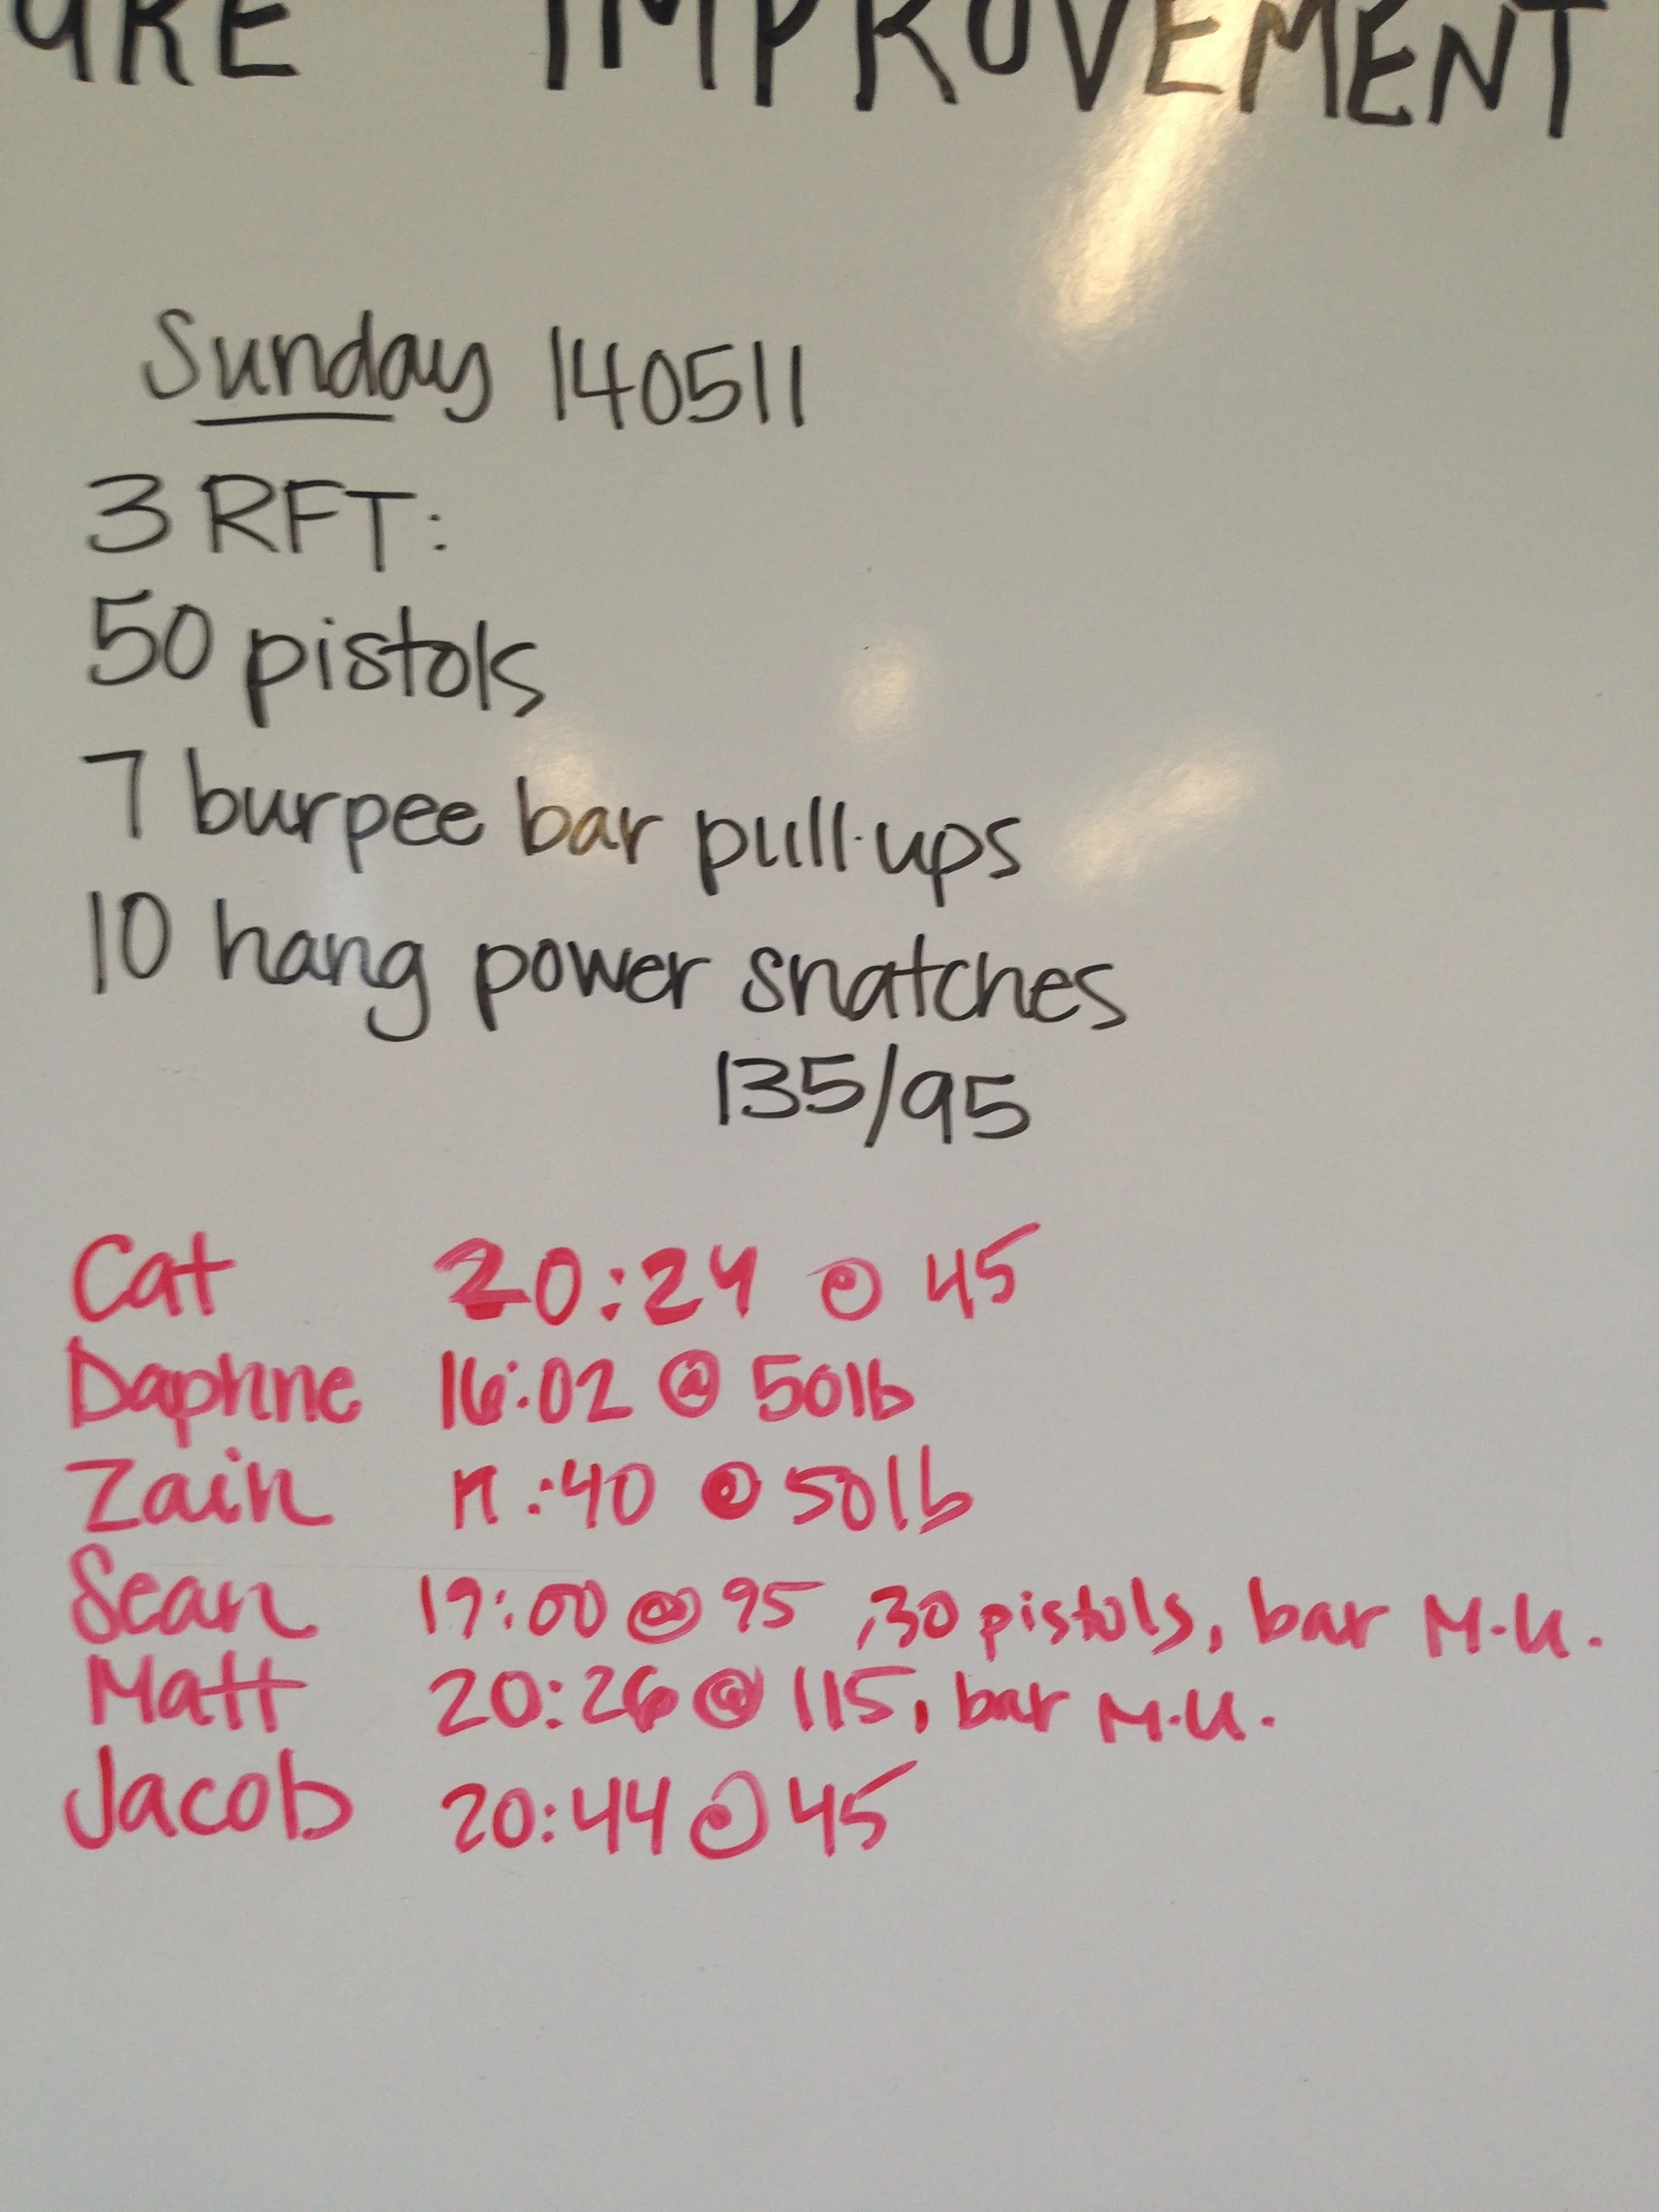 URE IMPROVEMENT
Sunday 140511
3 RFT:
50 pistols
7 burpee bar pull-ups
10 hang power snatches
135/95
Cat 20:24 @ 45
Daphne 16:02 @ 50lb
Zain 17:40 @ 50lb
Sean 19:00 @ 95, 30 pistols, bar M.U.
Matt 20:26 @ 115, bar M.U.
Jacob 20:44 @ 45